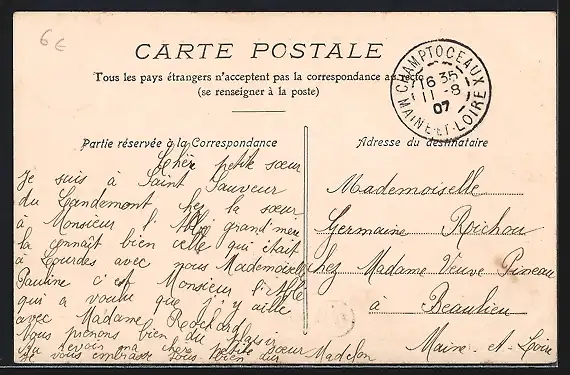 6 €
CARTE POSTALE
Tous les pays étrangers n'acceptent pas la correspondance au recto
(se renseigner à la poste)
CHAMPTOCEAUX
16 35
11 - 8
07
MAINE-ET-LOIRE
Partie réservée à la Correspondance
Chère petite sœur
Je suis à Saint Sauveur
du Landemont chez la sœur
à Monsieur l'Abbé grand'mère
la connaît bien celle qui était
à Lourdes avec nous Mademoiselle
Pauline c'est Monsieur l'Abbé
qui a voulu que j'y aille
avec Madame
Vous prenons bien du plaisir
Au revoir ma chère petite sœur
Je vous embrasse tous bien dur Madelon
Adresse du destinataire
Mademoiselle
Germaine Roichou
chez Madame Veuve Pineau
à Beaulieu
Maine-et-Loire